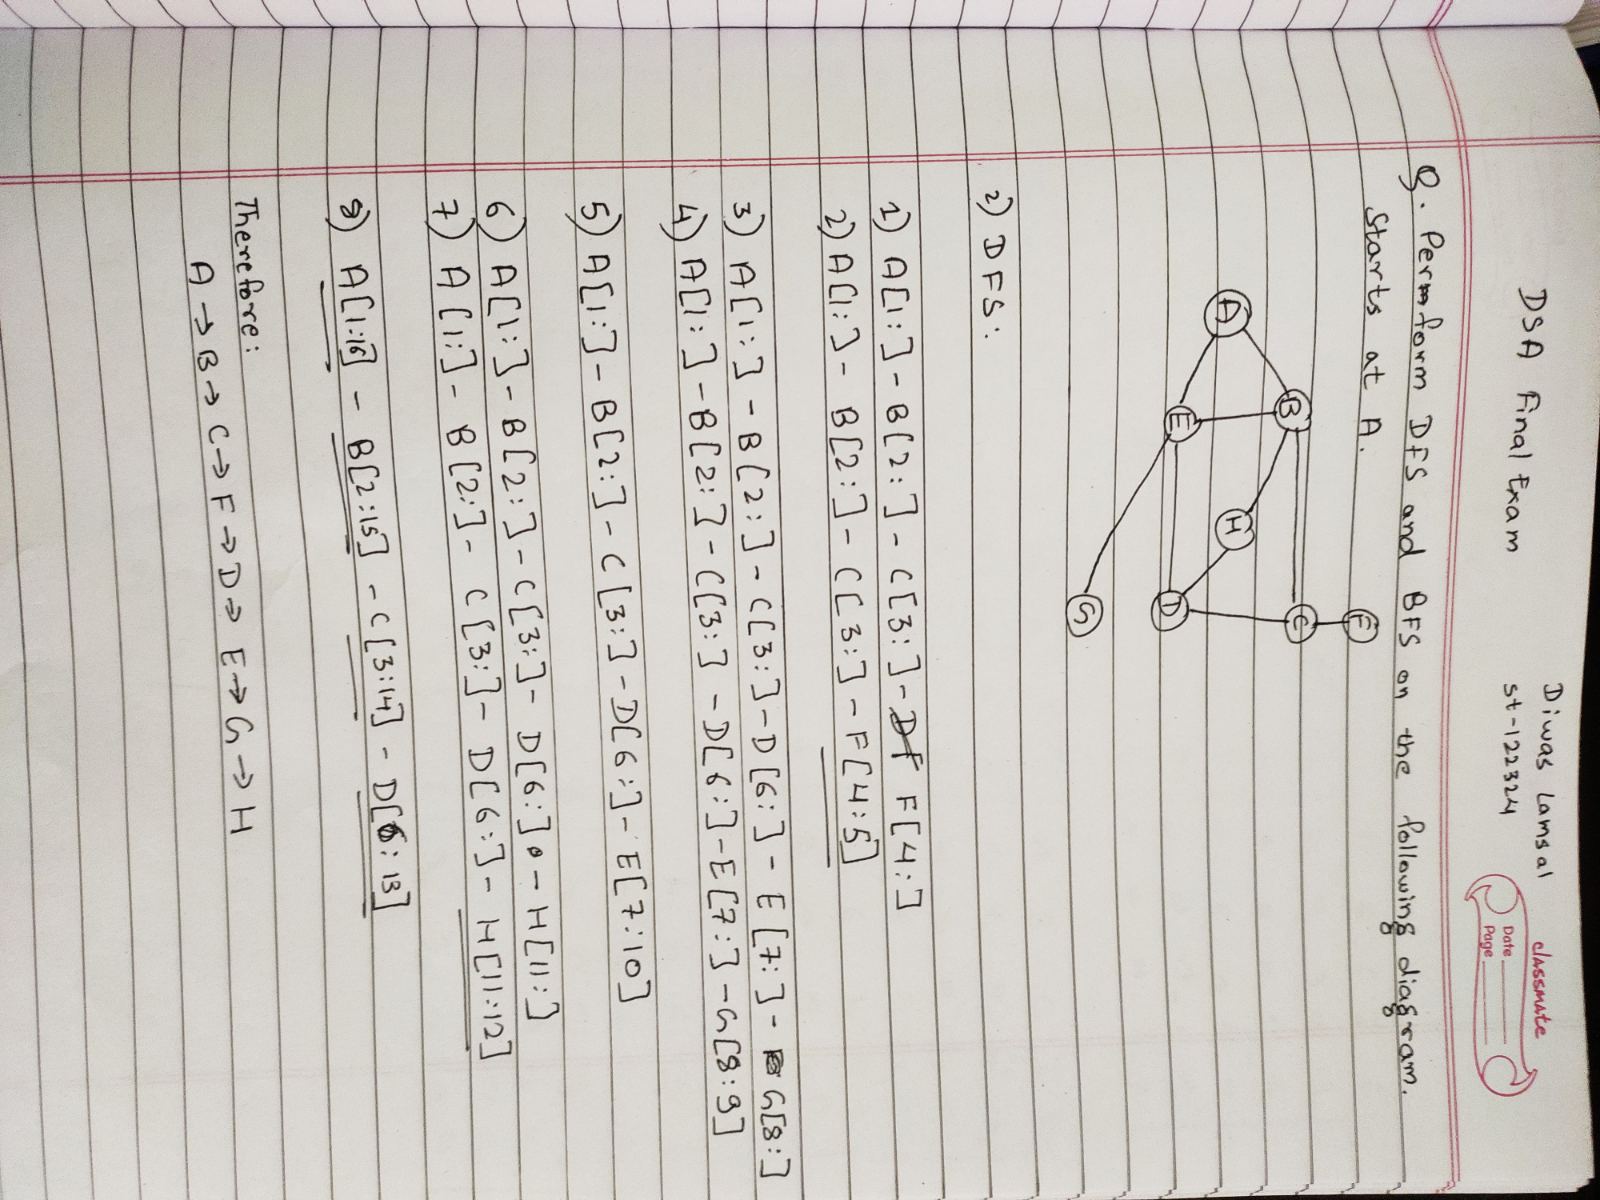 DSA Final Exam
Diwas Lamsal
st-122324
classmate
Date
Page
Q. Permform DFS and BFS on the following diagram.
Starts at A.
F
B
C
A
H
E
D
G
2) DFS:
1) A[1:] - B[2:] - C[3:] - F[4:]
2) A[1:] - B[2:] - C[3:] - F[4:5]
3) A[1:] - B[2:] - C[3:] - D[6:] - E[7:] - G[8:]
4) A[1:] - B[2:] - C[3:] - D[6:] - E[7:] - G[8:9]
5) A[1:] - B[2:] - C[3:] - D[6:] - E[7:10]
6) A[1:] - B[2:] - C[3:] - D[6:] - H[11:]
7) A[1:] - B[2:] - C[3:] - D[6:] - H[11:12]
8) A[1:16] - B[2:15] - C[3:14] - D[6:13]
Therefore:
A → B → C → F → D → E → G → H